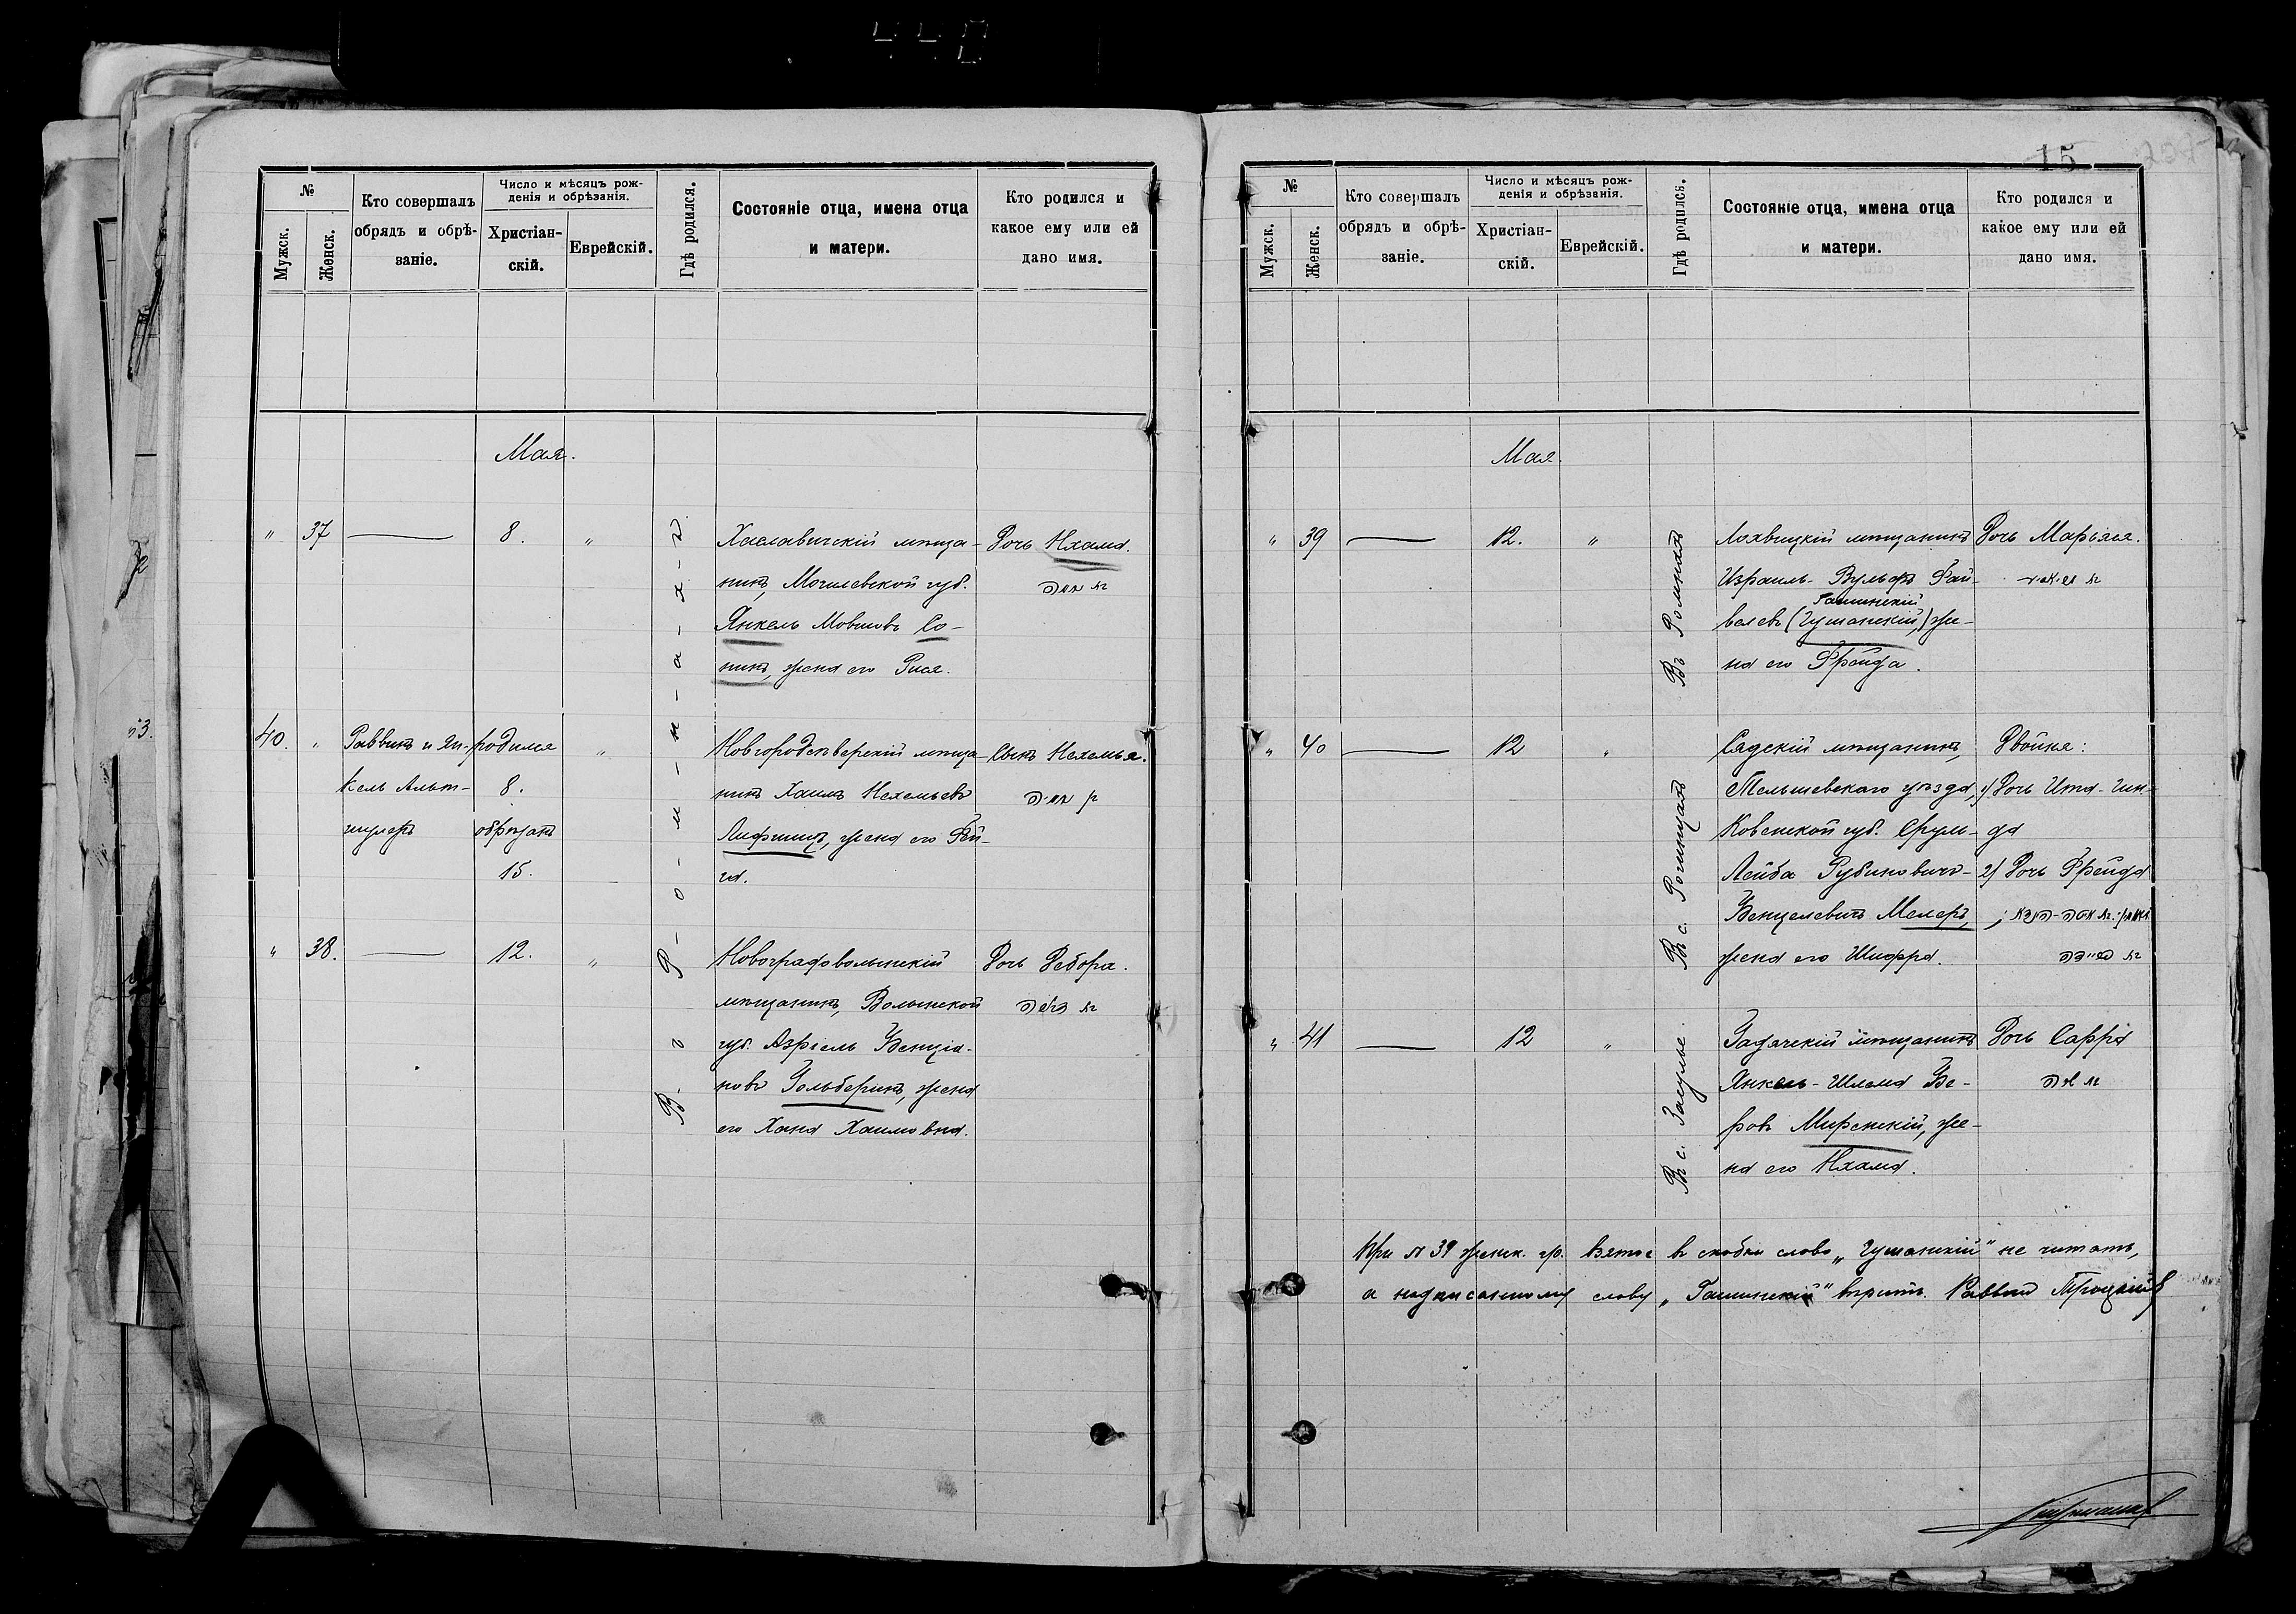 №
Мужск.
Женск.
Кто совершалъ
обрядъ и обрѣ-
заніе.
Число и мѣсяцъ рож-
денія и обрѣзанія.
Христіан-
скій.
Еврейскій.
Гдѣ родился.
Состояніе отца, имена отца
и матери.
Кто родился и
какое ему или ей
дано имя.
Мая.
" 37 — 8. "
Хаславичскій мѣща-
нинъ, Могилевской губ.
Янкель Мовшовъ Со-
нинъ, жена его Рися.
Дочь Нхама.
40. "
Раввинъ и Ян-
кель Альт-
шулеръ
родился
8.
обрѣзанъ
15.
"
Новгородсѣверскій мѣща-
нинъ Хаимъ Нехемьевъ
Лифшицъ, жена его Фей-
га.
Сынъ Нехемья.
" 38. — 12. "
Новоградволынскій
мѣщанинъ, Волынской
губ. Азріель Бенціа-
новъ Гольберинъ, жена
его Хана Хаимовна.
Дочь Дебора.
В. г. Р-о-м-н-а-х-ъ.
15
№
Мужск.
Женск.
Кто совершалъ
обрядъ и обрѣ-
заніе.
Число и мѣсяцъ рож-
денія и обрѣзанія.
Христіан-
скій.
Еврейскій.
Гдѣ родился.
Состояніе отца, имена отца
и матери.
Кто родился и
какое ему или ей
дано имя.
Мая.
" 39 — 12. "
Въ Ромнахъ
Лохвицкій мѣщанинъ
Израиль-Вульфъ Фай-
Гашинскій
велевъ (Гушанскій,) же-
на его Фрейда.
Дочь Марьяся.
" 40 — 12 "
Въ с.
Садскій мѣщанинъ,
Тельшевскаго уѣзда,
Ковенской губ. Сруль-
Лейба Рубиновичъ-
Бенцелевичъ Мелеръ,
жена его Шифра.
Двойня:
1) Дочь Ита-Гин-
да
2) Дочь Фрейда
" 41 — 12 "
Въ с. Засулье.
Гадячскій мѣщанинъ
Янкель-Шлема Бе-
ровъ Миренскій, же-
на его Нхама.
Дочь Сарра
דל שרה
При № 39 женск. гр. взятое въ скобки слово „Гушанскій" не читать,
а надписанному слову „Гашинскій" вѣрить. Раввинъ Троцкій